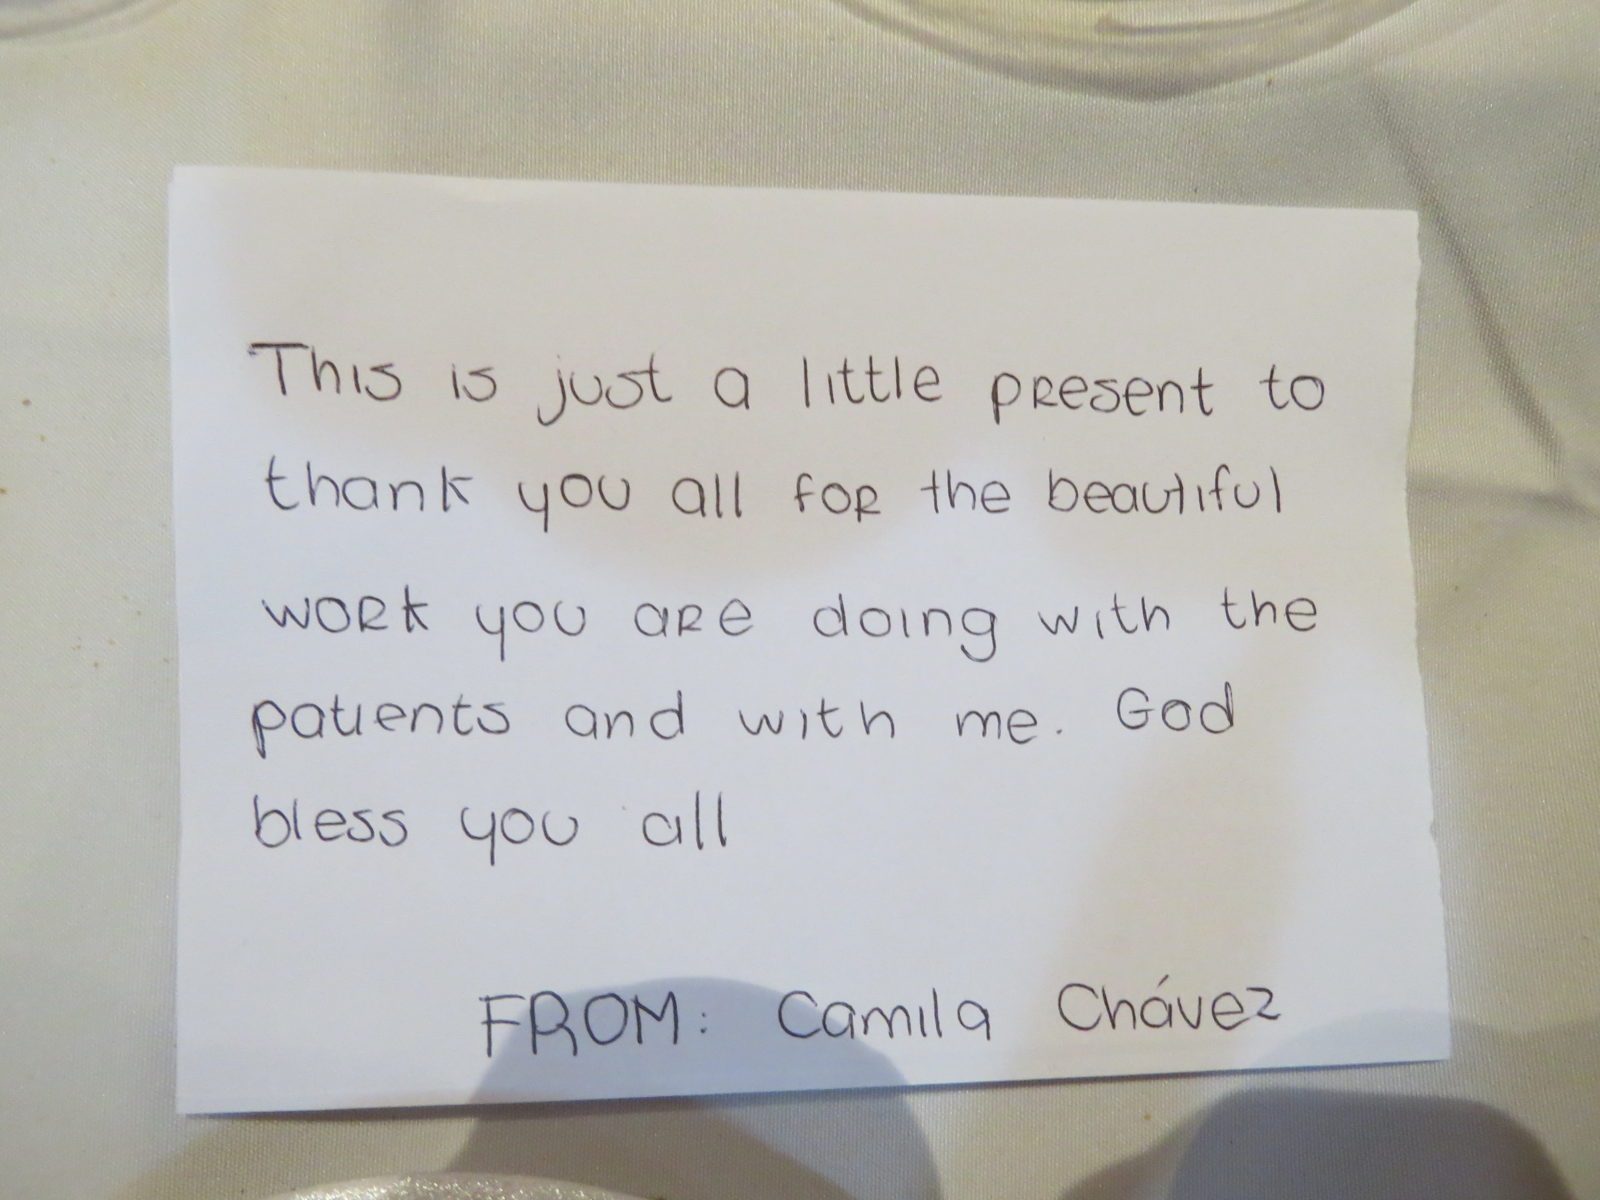 This is just a little present to
thank you all for the beautiful
work you are doing with the
patients and with me. God
bless you all
FROM: Camila Chávez